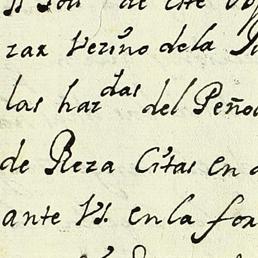 de este
zar Verino dela
las har das del Peño
de Reza Citas en
ante Vs. en la for